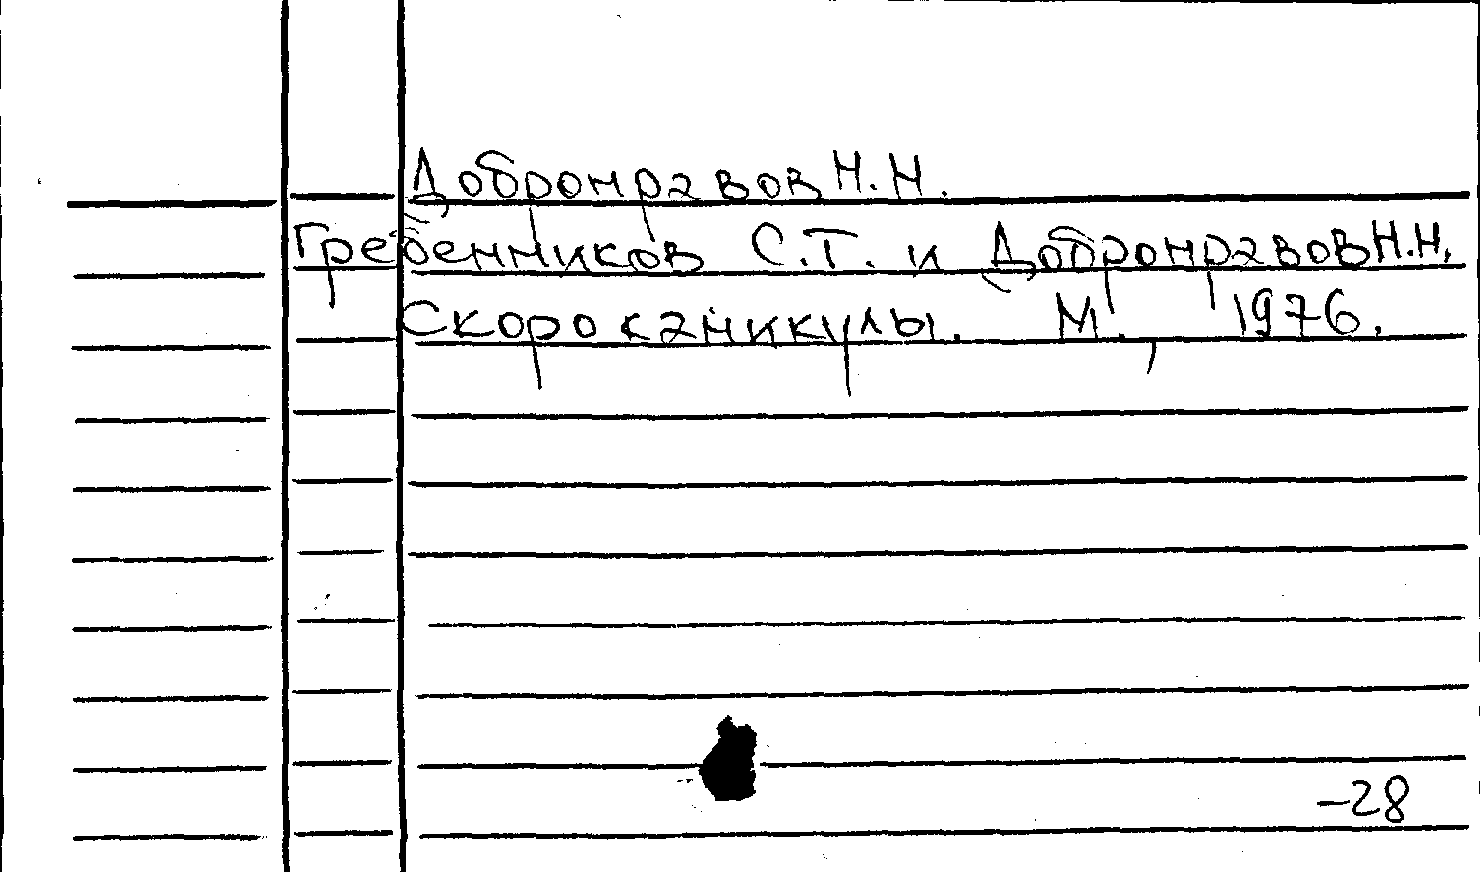 Добронравов Н.Н.
Гребенников С.Т. и Добронравов Н.Н.
Скоро каникулы. М., 1976.
-28